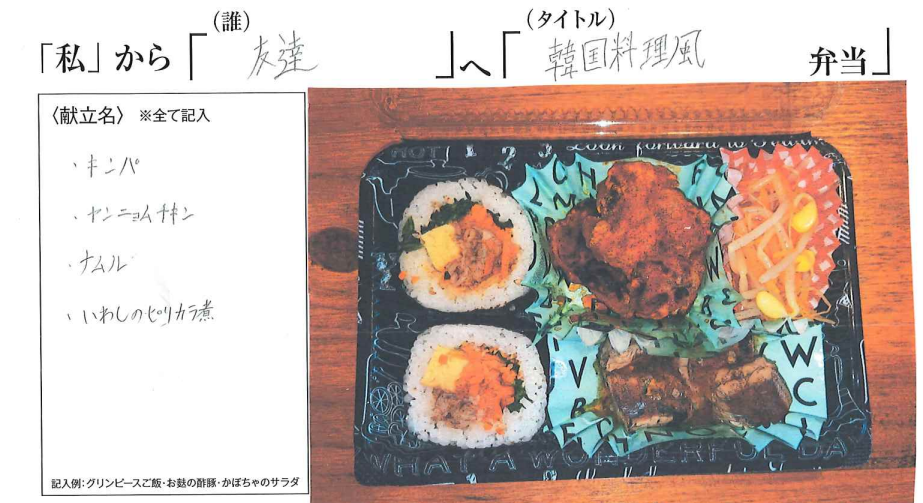 (誰)
(タイトル)
「私」から「友達」へ「韓国料理風 弁当」
〈献立名〉 ※全て記入
・キンパ
・ヤンニョムチキン
・ナムル
・いわしのピリカラ煮
記入例:グリンピースご飯・お麩の酢豚・かぼちゃのサラダ
HOT! 1 2 3 Look forward to
W
V
W
C
WHAT A WONDERFUL DAY